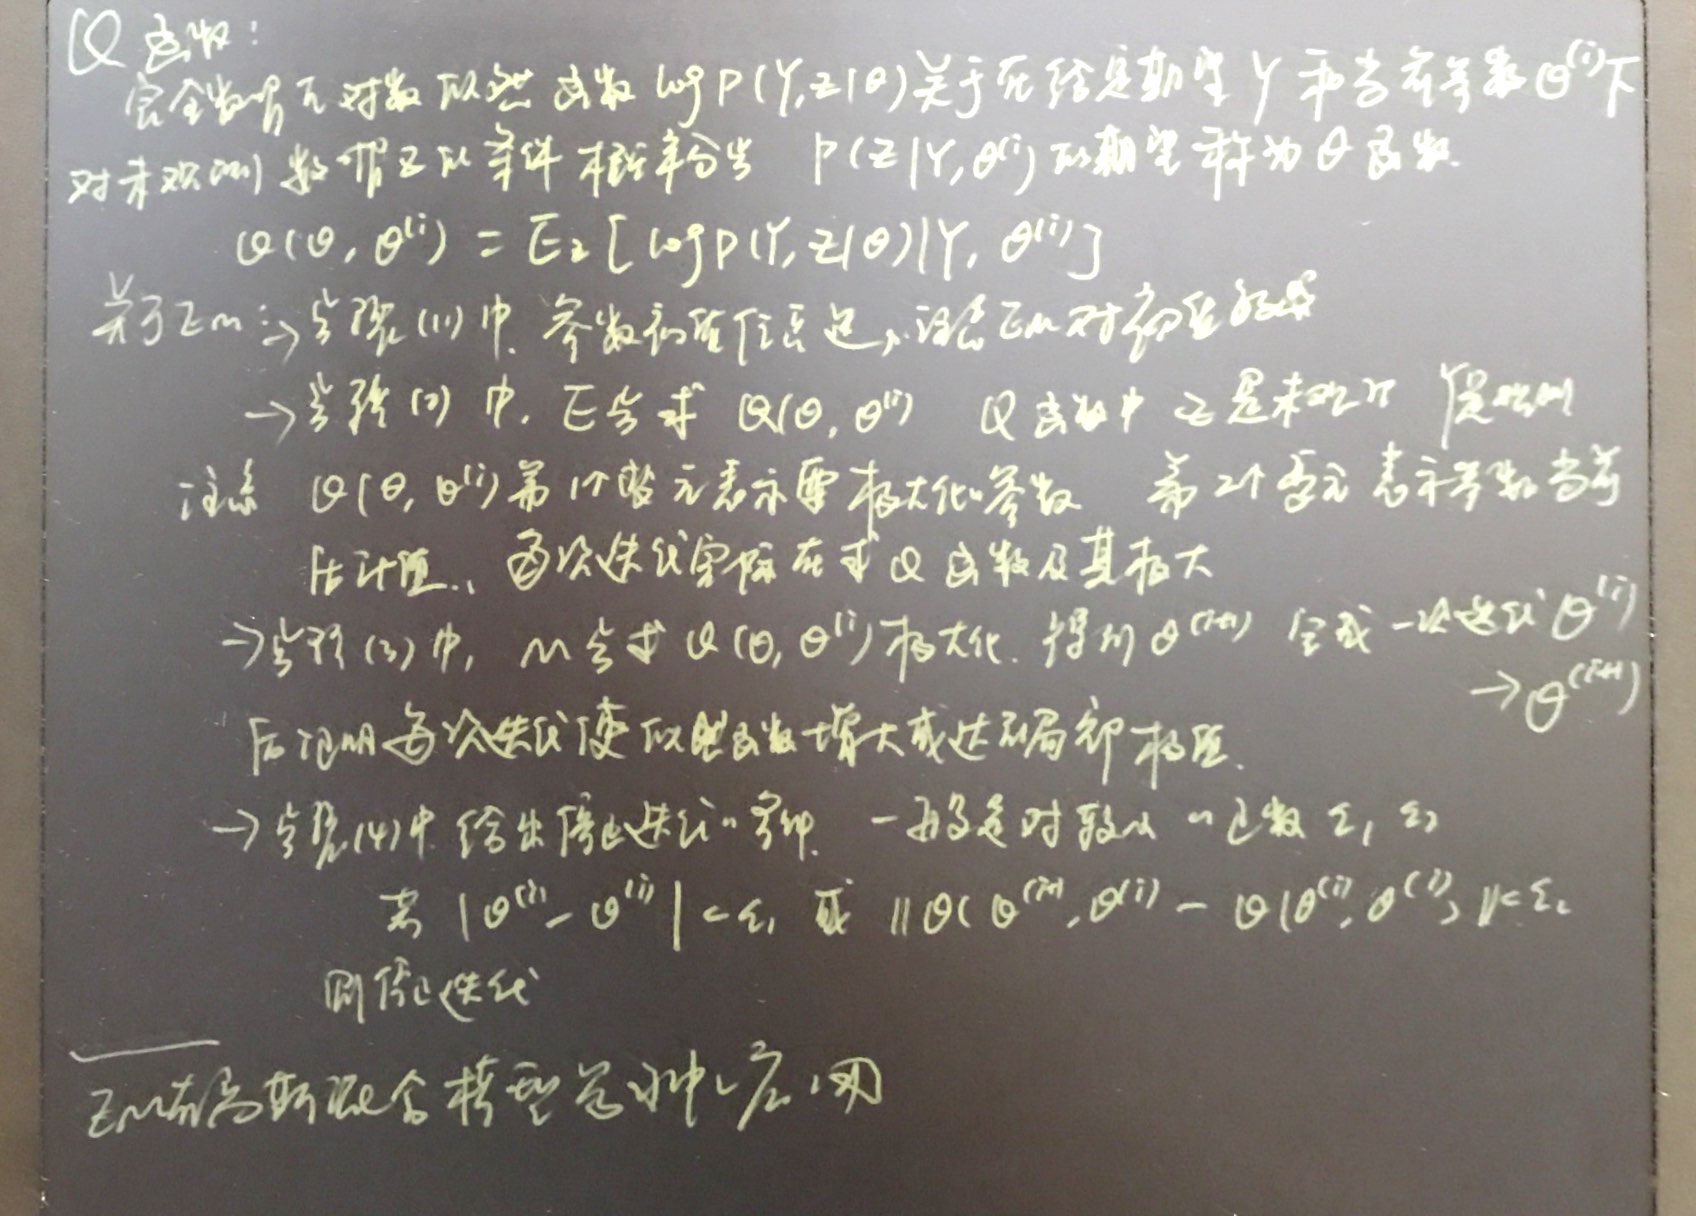 Q函数:
完全数据的对数似然函数 log P(Y,Z|θ)关于在给定期望Y和当前参数θ^(i)下
对未观测数据Z的条件概率分布 P(Z|Y,θ^(i))的期望称为Q函数.
Q(θ,θ^(i)) = E_Z[log P(Y,Z|θ)|Y,θ^(i)]
关于EM: → 步骤(1)中,参数初值任意选, 注意EM对初值敏感
→ 步骤(2)中, E步求 Q(θ,θ^(i)) Q函数中Z是未观 Y是观测
注意 Q(θ,θ^(i)) 第1个变元表示要极大化的参数 第2个变元表示参数当前
估计值, 每次迭代实际在求Q函数及其极大
→ 步骤(3)中, M步求 Q(θ,θ^(i))极大化. 得到θ^(i+1) 完成一次迭代 θ^(i)
→ θ^(i+1)
后证明每次迭代使似然函数增大或达到局部极值.
→ 步骤(4)中 给出停止迭代的条件. 一般是对较小的正数 ε₁ ε₂
若 |θ^(i) - θ^(i)| < ε₁ 或 ||Q(θ^(i+1),θ^(i)) - Q(θ^(i),θ^(i))|| < ε₂
则停止迭代
EM在高斯混合模型学习中的应用